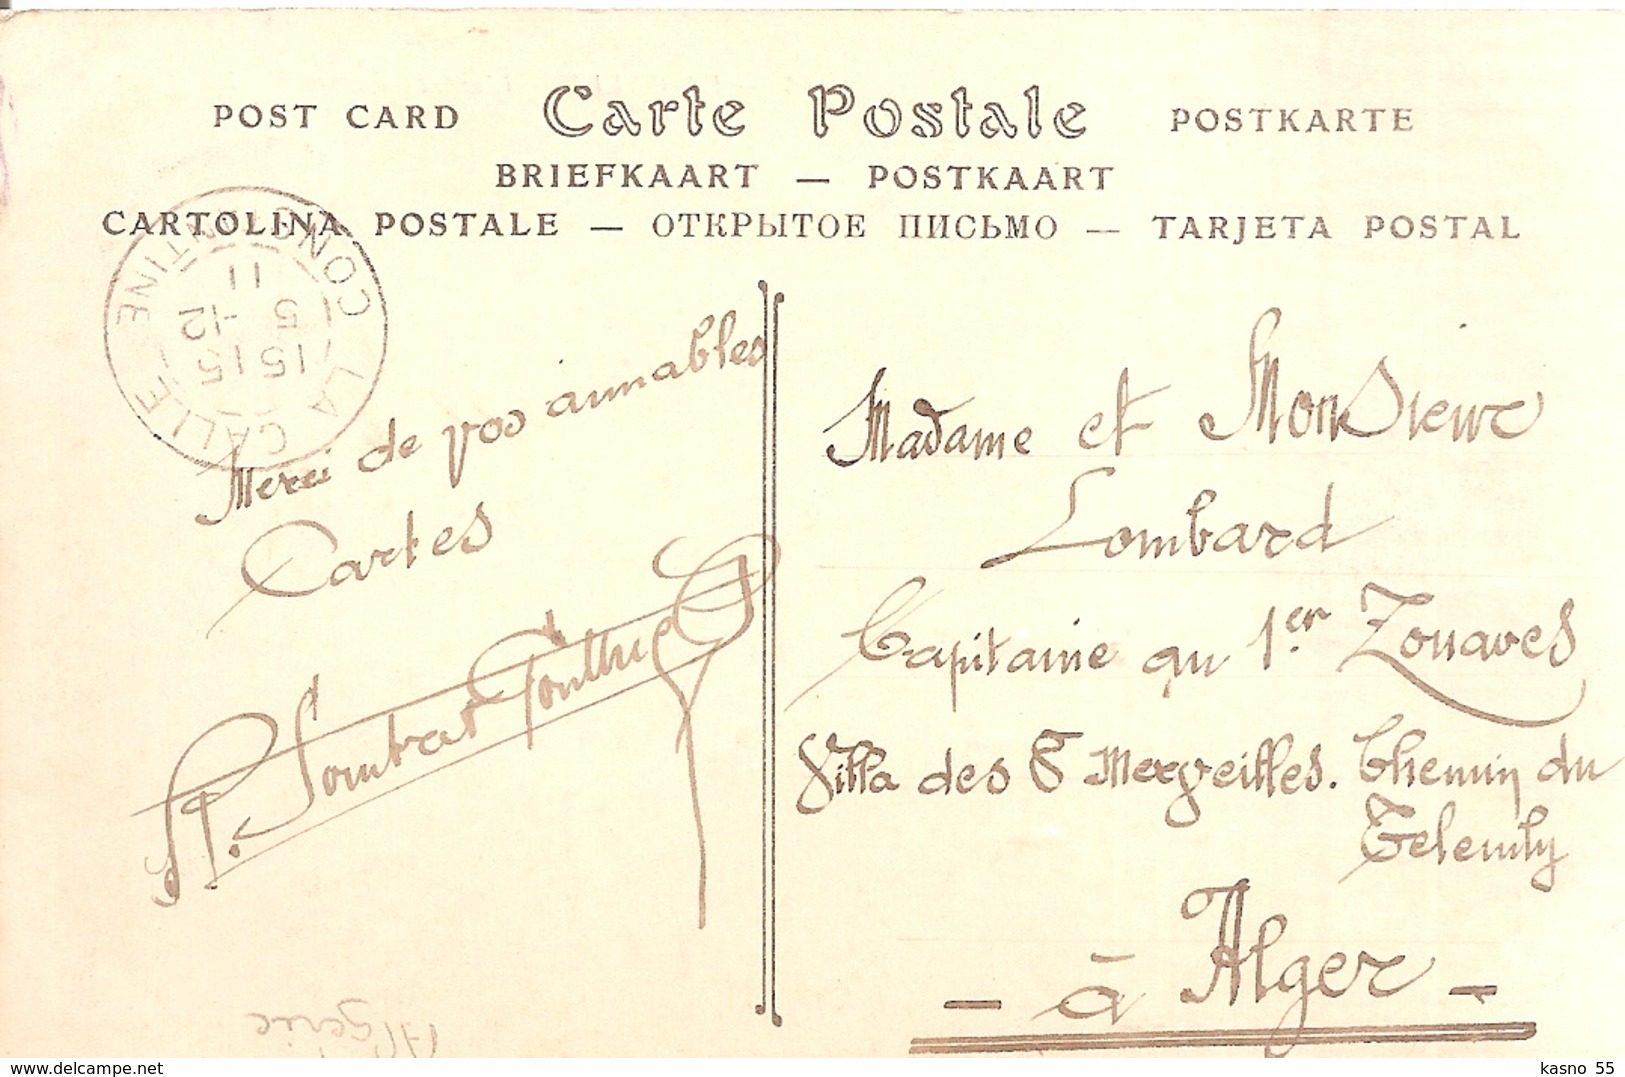 POST CARD Carte Postale POSTKARTE
BRIEFKAART — POSTKAART
CARTOLINA POSTALE — ОТКРЫТОЕ ПИСЬМО — TARJETA POSTAL
LA CALLE CONSTANTINE
15 15
5 -12
11
Merci de vos aimables
Cartes
Madame et Monsieur
Lombard
Capitaine au 1.er Zouaves
Villa des Merveilles. Chemin du
Telemly
- à Alger -
Algérie
delcampe.net
kasno 55